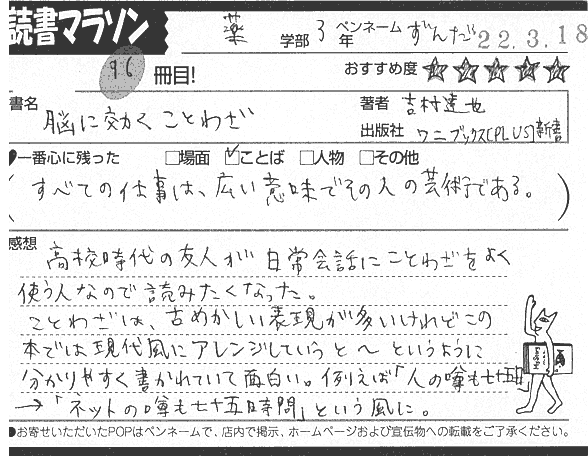 読書マラソン
薬 学部 3 年 ペンネーム ずんだ 22.3.18
96 冊目! おすすめ度 ★★★★★
書名 脳に効くことわざ
著者 吉村達也
出版社 ワニブックス[PLUS]新書
♥一番心に残った □場面 ☑ことば □人物 □その他
(すべての仕事は、広い意味でその人の芸術である。)
感想 高校時代の友人が日常会話にことわざをよく
使う人なので読みたくなった。
ことわざは、古めかしい表現が多いけれどこの
本では現代風にアレンジしていうと〜というように
分かりやすく書かれていて面白い。例えば「人の噂も七十五日」
→「ネットの噂も七十五時間」という風に。
●お寄せいただいたPOPはペンネームで、店内で掲示、ホームページおよび宣伝物への転載をご了承ください。